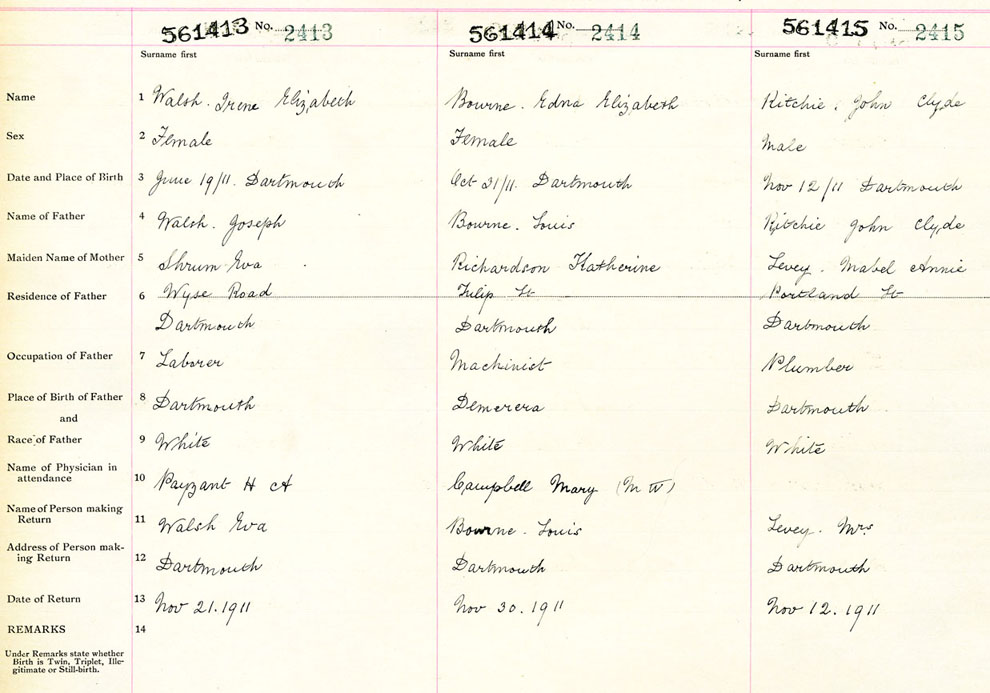 561413 No. 2413 561414 No. 2414 561415 No. 2415
Surname first Surname first Surname first
Name 1 Walsh. Irene Elizabeth Bourne. Edna Elizabeth Ritchie. John Clyde
Sex 2 Female Female Male
Date and Place of Birth 3 June 19/11. Dartmouth Oct 31/11. Dartmouth Nov 12/11 Dartmouth
Name of Father 4 Walsh. Joseph Bourne. Louis Ritchie John Clyde
Maiden Name of Mother 5 Shrum Eva Richardson Katherine Levey. Mabel Annie
Residence of Father 6 Wyse Road Tulip St Portland St
Dartmouth Dartmouth Dartmouth
Occupation of Father 7 Laborer Machinist Plumber
Place of Birth of Father 8 Dartmouth Demerera Dartmouth
and
Race of Father 9 White White White
Name of Physician in
attendance 10 Payzant H A Campbell Mary (M W)
Name of Person making
Return 11 Walsh Eva Bourne. Louis Levey. Mrs
Address of Person mak-
ing Return 12 Dartmouth Dartmouth Dartmouth
Date of Return 13 Nov 21.1911 Nov 30.1911 Nov 12.1911
REMARKS 14
Under Remarks state whether
Birth is Twin, Triplet, Ille-
gitimate or Still-birth.